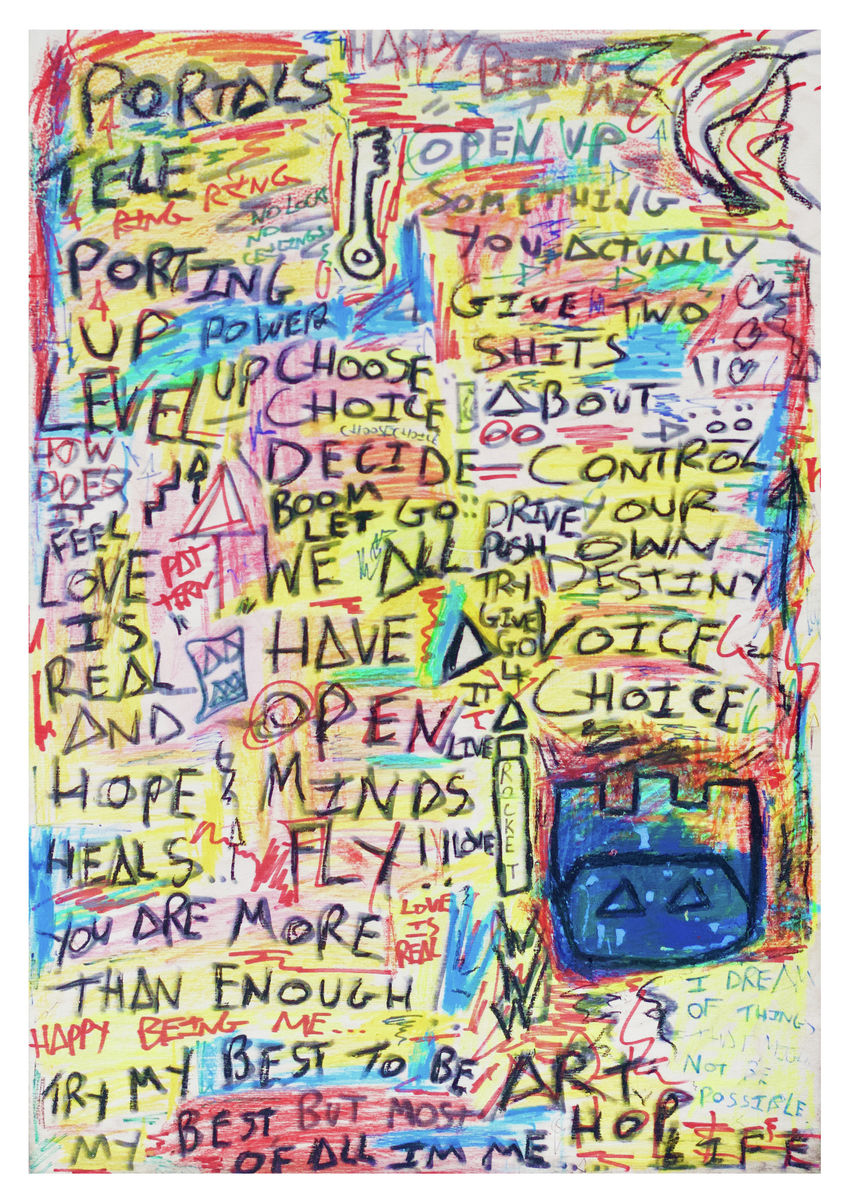 PORTALS
TELE
RING RING
NO LOCKS
NO
CEILINGS
PORTING
UP POWER
LEVEL UP
CHOOSE
CHOICE
CHOOSE CHOICE
DECIDE = CONTROL
BOOM
LET GO
HOW
DOES
IT
FEEL
LOVE
IS
REAL
AND
HOPE
HEALS
PAT
TERN
WE ALL
HAVE
OPEN
MINDS
FLY!!
HAPPY BEING
ME
OPEN UP
SOMETHING
YOU ACTUALLY
GIVE TWO
SHITS
ABOUT
DRIVE
PUSH
TRY
GIVE
GO
4
IT
YOUR
OWN
DESTINY
VOICE
CHOICE
LIVE
LOVE
ROCKET
YOU ARE MORE
THAN ENOUGH
LOVE
IS
REAL
HAPPY BEING ME....
TRY MY BEST TO BE
MY BEST BUT MOST
OF ALL IM ME...
I DREAM
OF THINGS
NOT BE
POSSIBLE
ART
HOP
LIFE